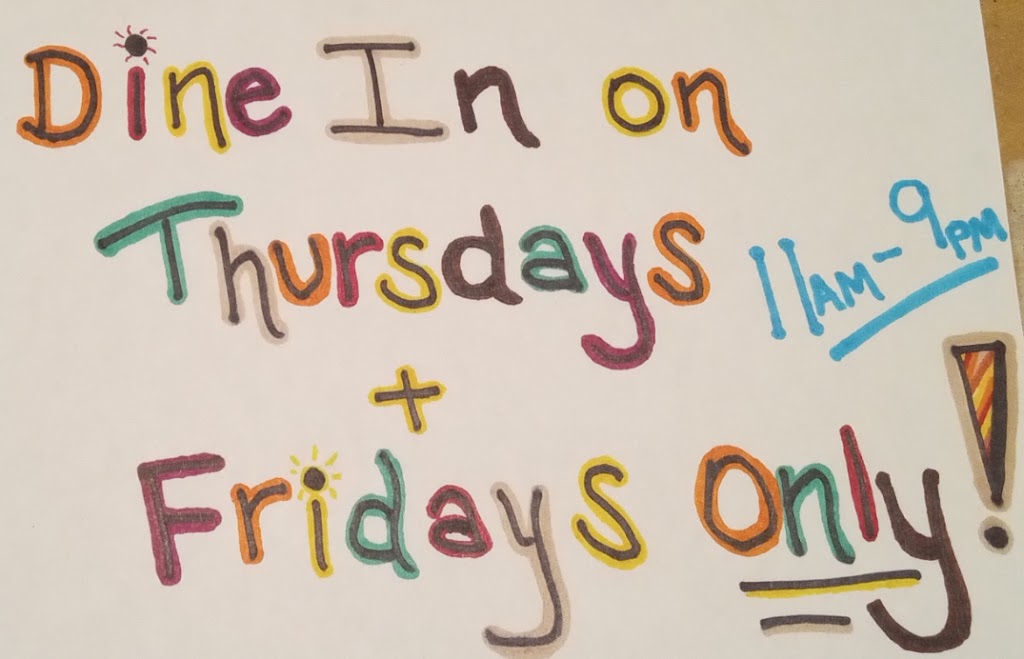 Dine In on
Thursdays
11AM - 9PM
+
Fridays Only!